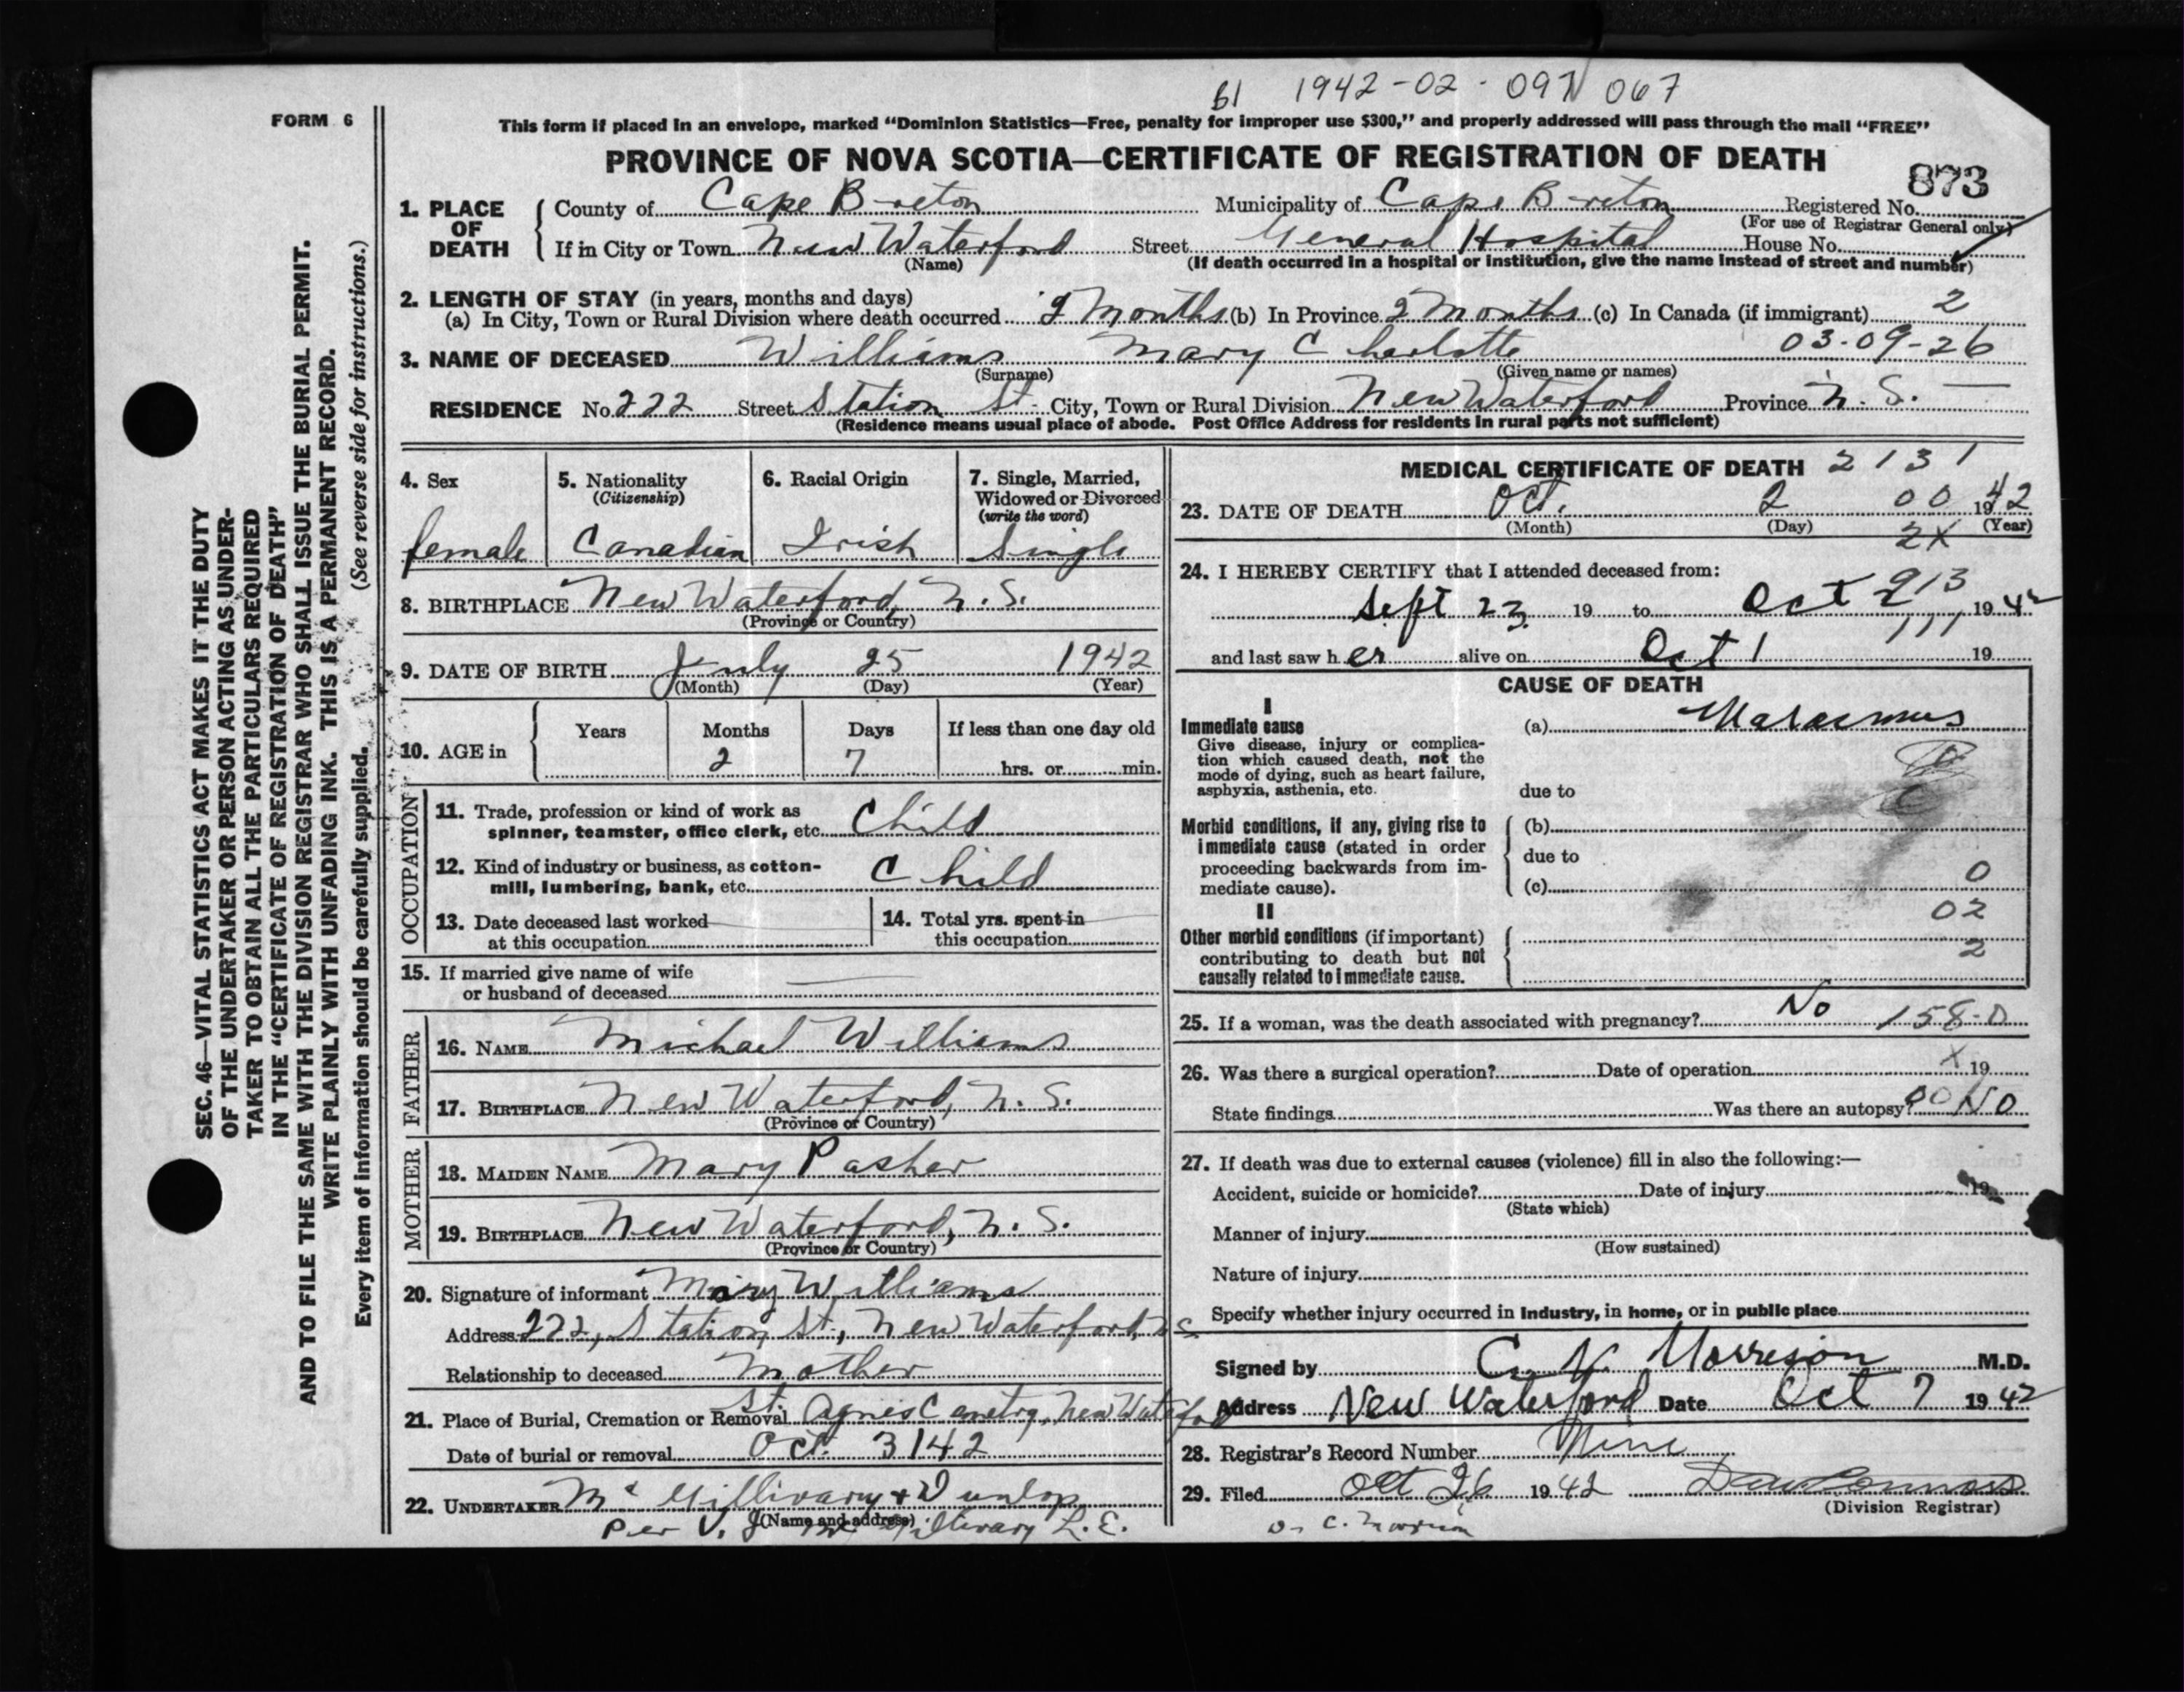 61 1942-02-097 067
FORM 6
This form if placed in an envelope, marked “Dominion Statistics—Free, penalty for improper use $300,” and properly addressed will pass through the mail “FREE”
PROVINCE OF NOVA SCOTIA—CERTIFICATE OF REGISTRATION OF DEATH
873
1. PLACE OF DEATH
County of Cape Breton Municipality of Cape Breton Registered No.
(For use of Registrar General only)
If in City or Town New Waterford Street General Hospital House No.
(Name) (If death occurred in a hospital or institution, give the name instead of street and number)
2. LENGTH OF STAY (in years, months and days)
(a) In City, Town or Rural Division where death occurred 2 Months (b) In Province 2 Months (c) In Canada (if immigrant) 2
3. NAME OF DECEASED Williams Mary Charlotte 03-09-26
(Surname) (Given name or names)
RESIDENCE No. 222 Street Station St. City, Town or Rural Division New Waterford Province N. S.
(Residence means usual place of abode. Post Office Address for residents in rural parts not sufficient)
4. Sex
female
5. Nationality
(Citizenship)
Canadian
6. Racial Origin
Irish
7. Single, Married,
Widowed or Divorced
(write the word)
Single
8. BIRTHPLACE New Waterford, N. S.
(Province or Country)
9. DATE OF BIRTH July 25 1942
(Month) (Day) (Year)
10. AGE in Years Months Days If less than one day old
2 7 hrs. or min.
OCCUPATION
11. Trade, profession or kind of work as
spinner, teamster, office clerk, etc. Child
12. Kind of industry or business, as cotton-
mill, lumbering, bank, etc. Child
13. Date deceased last worked
at this occupation
14. Total yrs. spent in
this occupation
15. If married give name of wife
or husband of deceased
FATHER
16. NAME Michael Williams
17. BIRTHPLACE New Waterford, N. S.
(Province or Country)
MOTHER
18. MAIDEN NAME Mary Pasher
19. BIRTHPLACE New Waterford, N. S.
(Province or Country)
20. Signature of informant Mary Williams
Address 222, Station St., New Waterford, N S
Relationship to deceased Mother
21. Place of Burial, Cremation or Removal St. Agnes Cemetry, New Waterford
Date of burial or removal Oct. 3 1942
22. UNDERTAKER Mc Gillivary & Dunlop
(Name and address)
Per V. J. Mc Gillivary L. E.
MEDICAL CERTIFICATE OF DEATH 2131
23. DATE OF DEATH Oct. 2 00 1942
(Month) (Day) (Year)
2X
24. I HEREBY CERTIFY that I attended deceased from:
913
Sept 23 19 to Oct 2 1942
111
and last saw her alive on Oct 1 19
CAUSE OF DEATH
I
Immediate cause
Give disease, injury or complica-
tion which caused death, not the
mode of dying, such as heart failure,
asphyxia, asthenia, etc.
(a) Marasmus
due to
Morbid conditions, if any, giving rise to
immediate cause (stated in order
proceeding backwards from im-
mediate cause).
(b)
due to
(c) 0
02
II
Other morbid conditions (if important)
contributing to death but not
causally related to immediate cause.
2
25. If a woman, was the death associated with pregnancy? No 158-0
26. Was there a surgical operation? Date of operation X 19
State findings Was there an autopsy? 00 No
27. If death was due to external causes (violence) fill in also the following:—
Accident, suicide or homicide? Date of injury 19
(State which)
Manner of injury
(How sustained)
Nature of injury
Specify whether injury occurred in industry, in home, or in public place
Signed by C. Morrison M.D.
Address New Waterford Date Oct 7 1942
28. Registrar's Record Number Nine
29. Filed Oct 26 1942
(Division Registrar)
Dr C. Morrison
SEC. 46—VITAL STATISTICS ACT MAKES IT THE DUTY
OF THE UNDERTAKER OR PERSON ACTING AS UNDER-
TAKER TO OBTAIN ALL THE PARTICULARS REQUIRED
IN THE “CERTIFICATE OF REGISTRATION OF DEATH”
AND TO FILE THE SAME WITH THE DIVISION REGISTRAR WHO SHALL ISSUE THE BURIAL PERMIT.
WRITE PLAINLY WITH UNFADING INK. THIS IS A PERMANENT RECORD.
Every item of information should be carefully supplied. (See reverse side for instructions.)